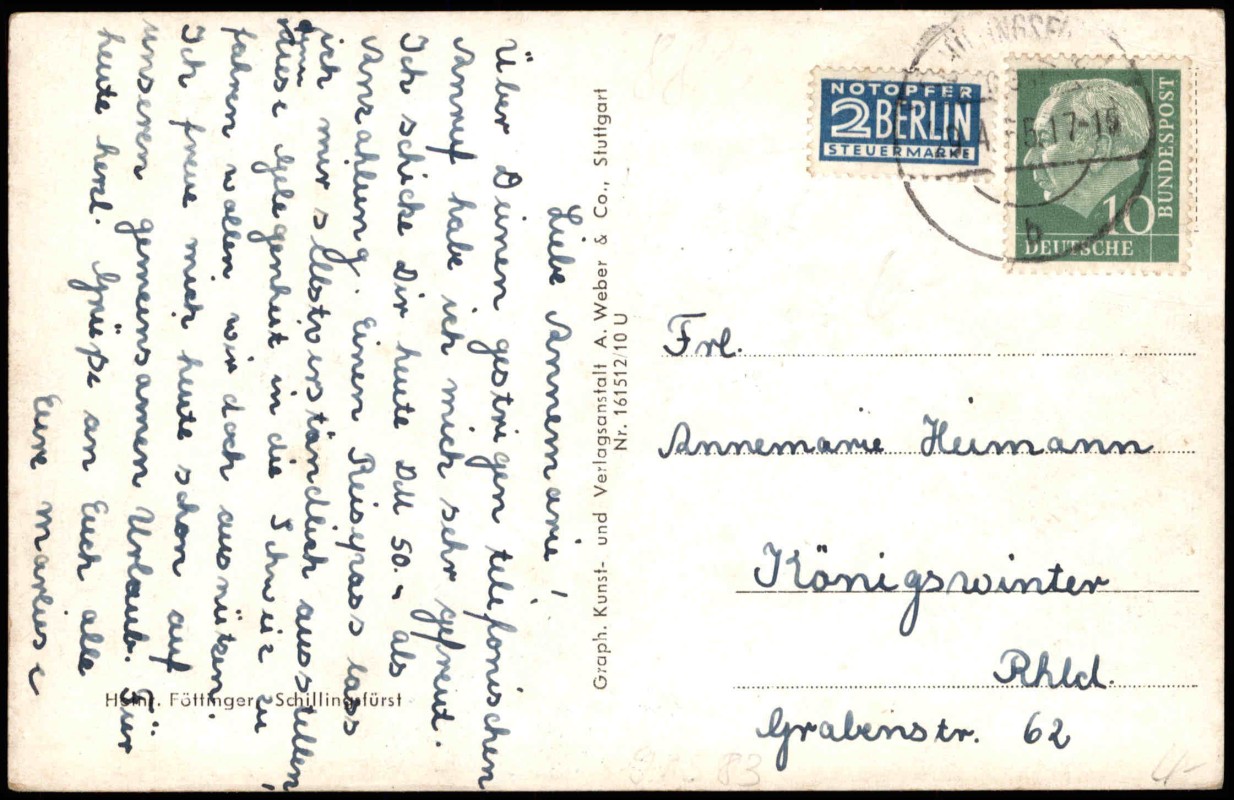 Liebe Annemarie!
Über Deinen gestrigen telefonischen
Anruf habe ich mich sehr gefreut.
Ich schicke Dir heute DM 50.- als
Anzahlung. Einen Reisepass lass
ich mir selbstverständlich ausstellen,
um diese Gelegenheit in die Schweiz zu
fahren wollen wir doch ausnützen.
Ich freue mich heute schon auf
unseren gemeinsamen Urlaub. Für
heute herzl. Grüße an Euch alle
Eure
Heinr. Föttinger, Schillingsfürst
Graph. Kunst- und Verlagsanstalt A. Weber & Co., Stuttgart
Nr. 161512/10 U
NOTOPFER
2 BERLIN
STEUERMARKE
17-18
b
10
DEUTSCHE
BUNDESPOST
Frl.
Annemarie Heimann
Königswinter
Rhld.
Grabenstr. 62